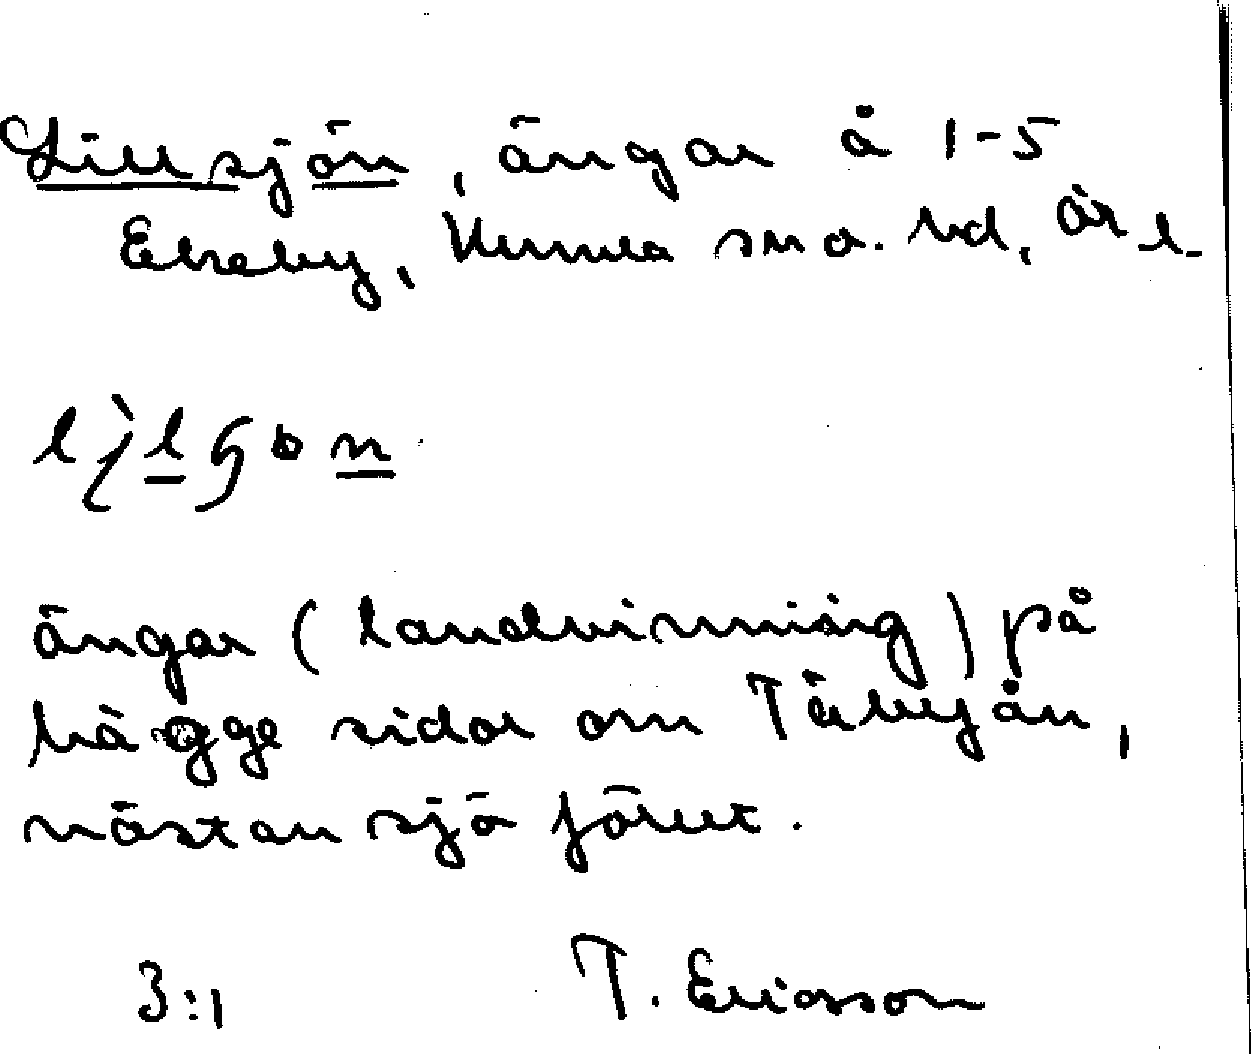 Lillsjön, ängar å 1-5
Ekeby, Kumla sn o. hd, Ör l.
ängar (landvinning) på
bägge sidor om Täbyån,
nästan sjö förut.
3:1 T. Ericsson